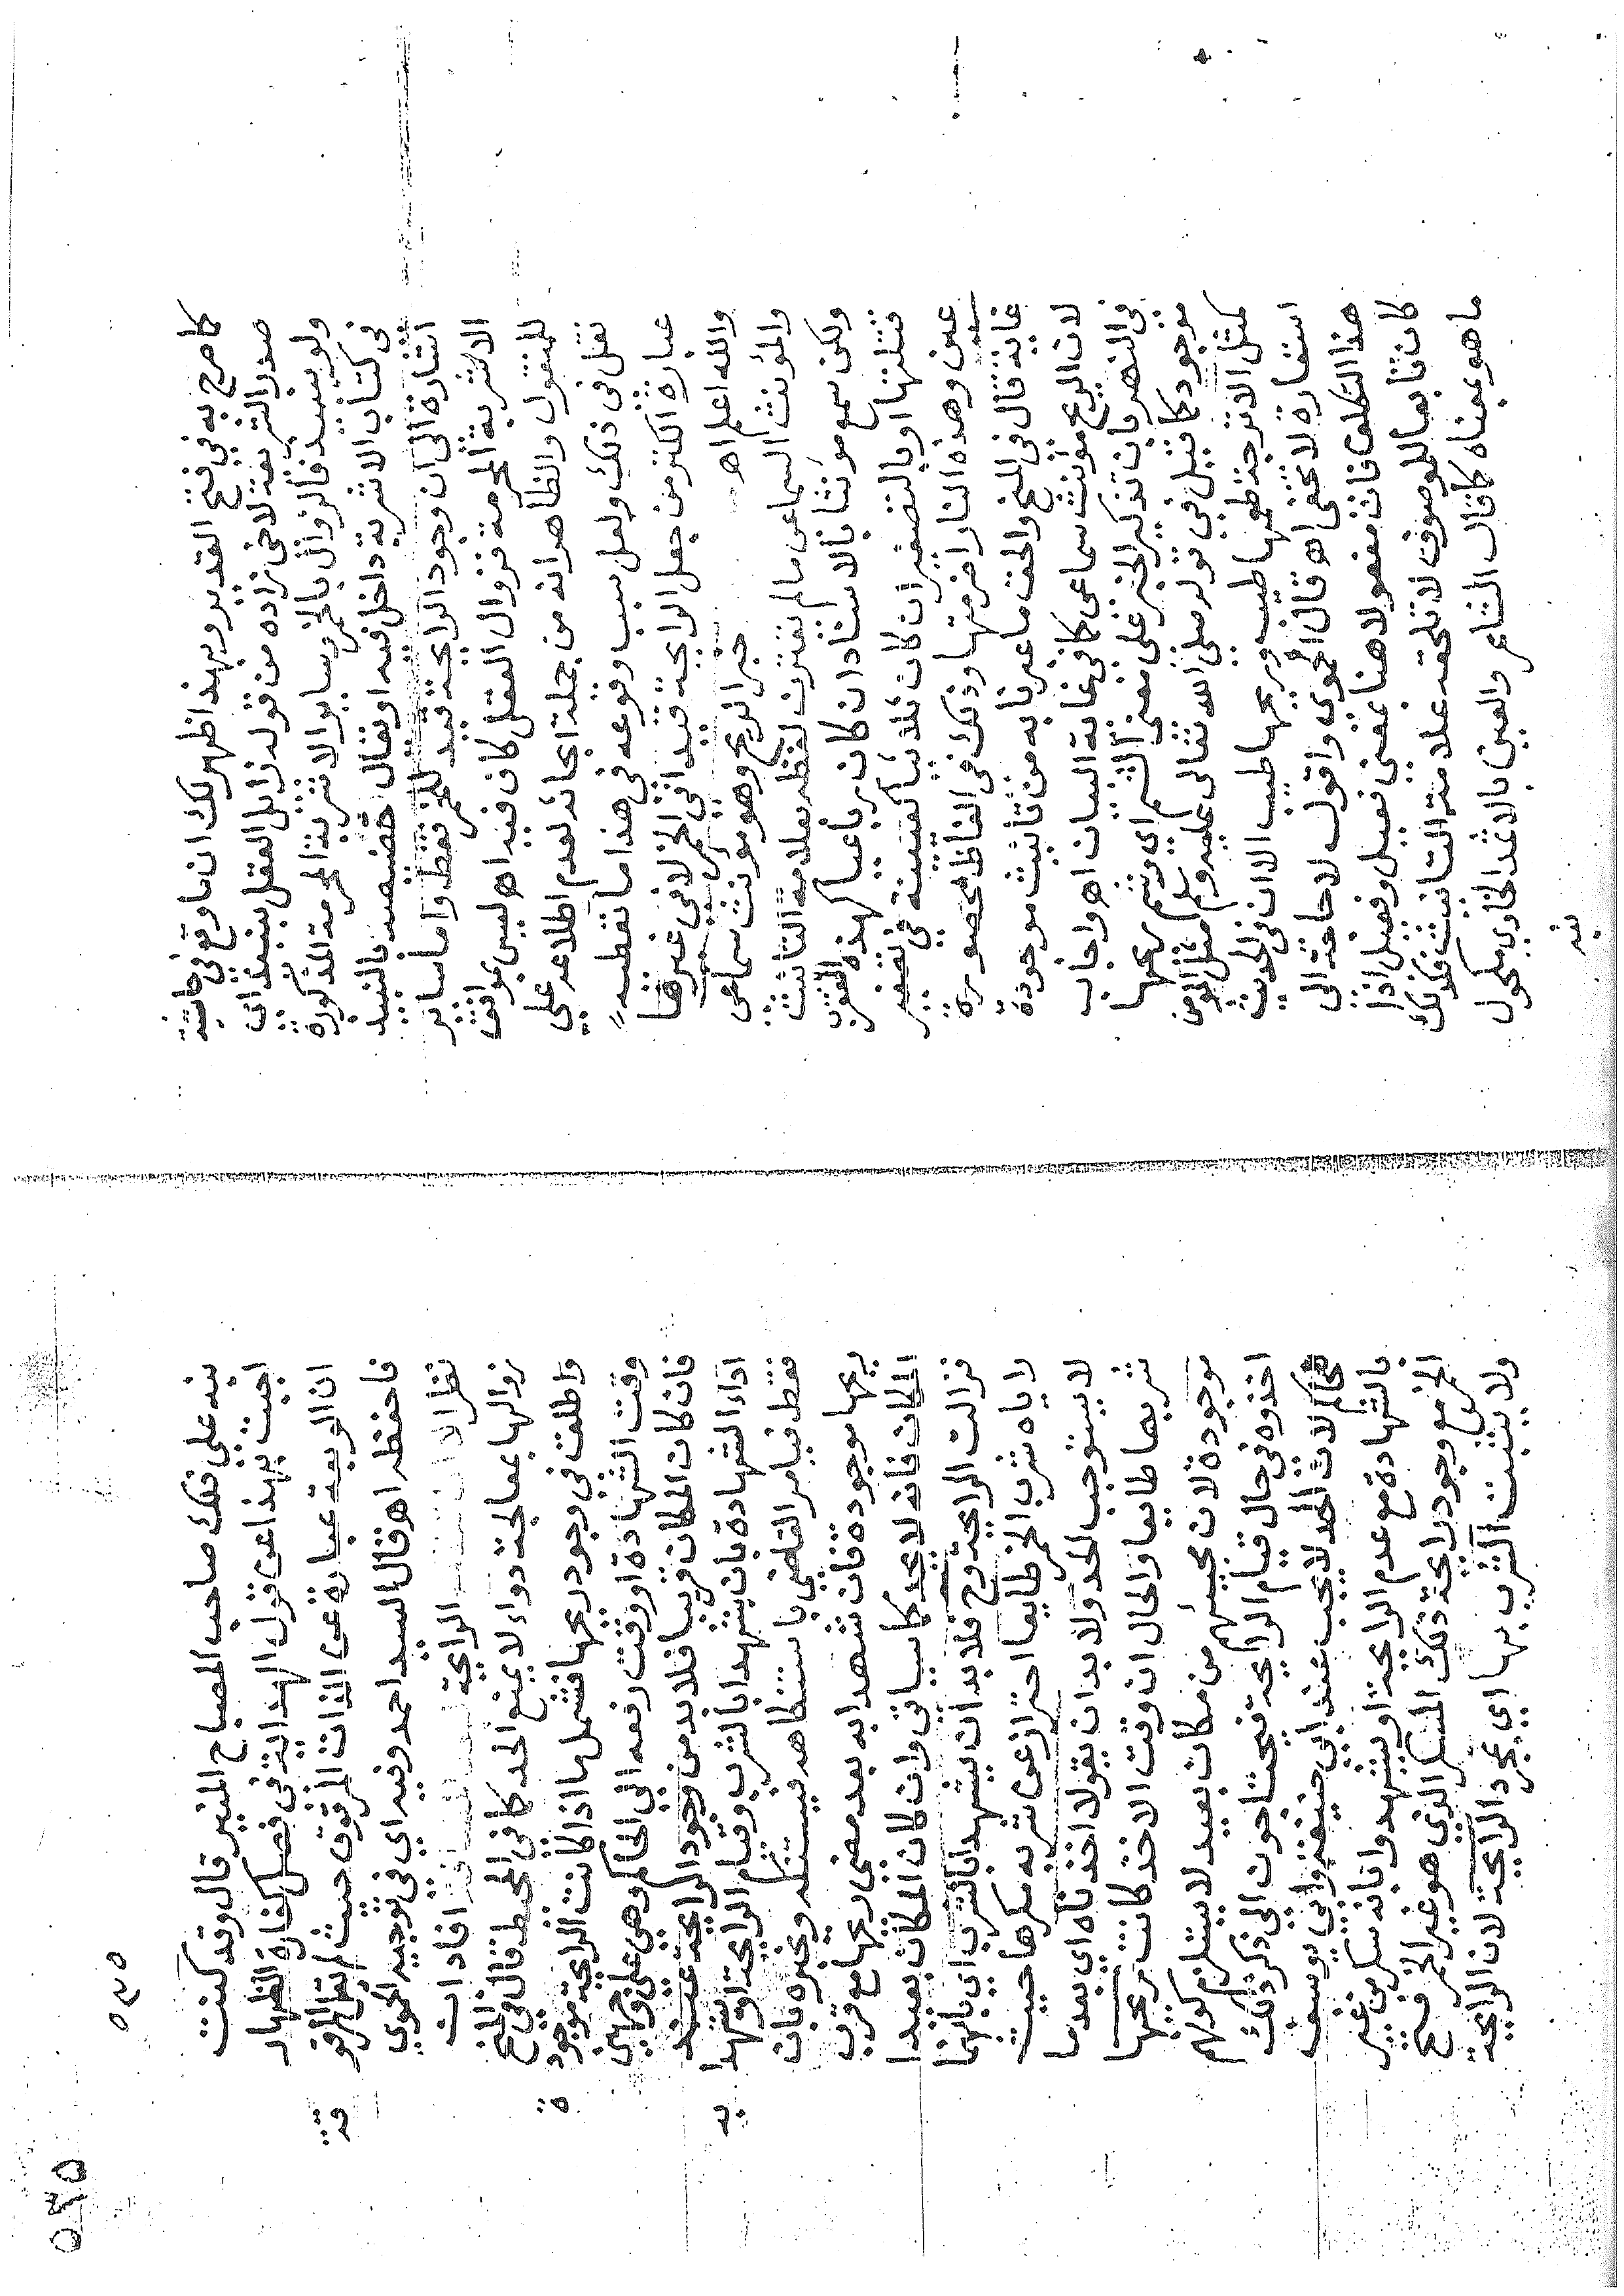 كما صرح به في فتح القدير وبهذا ظهر لك ان ما وقع في حاشية
صدر الشريعة لاخي زاده من قوله زائل العقل بنبيذ اي
ولو بنبيذ فالزوال بالخمر وسائر الاشربة المحرمة المذكورة
في كتاب الاشربة داخل فيه او يقال خصيصه بالنبيذ
اشارة الى ان وجود الرايحة قيد للخمر فقط واما سائر
الاشربة المحرمة فزوال العقل كان فيه اه ليس بموافق
للمنقول والظاهر انه من جملة ابحاثه لعدم اطلاعه على
نقل في ذلك ولعل سبب وقوعه في هذا ما تعطيه
عبارة الكثير من جعل الرايحة قيدا في الخمر لا في غيرها
والله اعلم اه خبر الريح وهو مونث سماعي
والمؤنث السماعي مالم تقترن لفظه بعلامة التأنيث
ولكن سمع مونثا بالاسناد ان كان رباعيا كهذه العقرب
قتلتها او بالتصغير ان كان ثلاثيا كعيينة في تصغير
عين وهذه النار اضرمتها وذلك في الفاظ محصورة
غاية قال في المنح والحق ما عبرنا به من تأنيث موجودة
لان الريح مؤنث سماعي كما في غاية البيان اه واجاب
في النهر بان تذكير الخبر على معنى الشم اي وشم ريحها
موجود كما قيل في قوله صلى الله تعالى عليه وسلم مثل المومن
كمثل الاترجة طعمها طيب وريحها طيب الا ان في الحديث
استعارة لا تخفى اه قال الحموي واقول لا حاجة الى
هذا التكلف فان مفعولا هنا بمعنى فعيل وفعيل اذا
كان تابعا للموصوف لا تلحقه علامة التانيث فكذلك
ما هو بمعناه كما قال الشاعر والعين بالاثمد الحاري مكحول
نبه
٥٢٥
نبه على ذلك صاحب المصباح المنير قال وقد كنت
اجبت بهذا عن قول الهداية في فصل كفارة الظهار
ان الوديعة عبارة عن الذات المرقوق حيث لم يقل المرقو
قة
فاحفظه اه قال السيد احمد وفيه اي في توجيه الحموي
نظر لان الرايحة افاد ان
زوالها بمعالجة دواء لا يمنع الحد كما في المحيط قال في المنح
واطلق في وجود ريحها فشمل ما اذا كانت الرايحة موجود
ة
وقت الشهادة او وقت رفعه الى الحاكم وهي على وجهين
فان كان المكان قريبا فلا بد من وجود الرايحة عند
اداء الشهادة بان يشهدا بالشرب وقيام الرايحة او يشهدا
به
فقط فيامر القاضي باستنكاهه فيستنكه ويخبره بان
ريحها موجودة فان شهدا به بعد مضي ريحها مع قرب
المكان فانه لا يحد كما سياتي وان كان المكان بعيدا
فزالت الرايحة فلا بد ان يشهدا بالشرب اي بانهما
راياه شرب الخمر طايعا احتراز عن شربه مكرها حيث
لا يستوجب الحد ولا بد ان يقولا اخذناه اي بعدما
شربها طايعا والحال ان وقت الاخذ كانت ريحها
موجودة لان مجيئهم من مكان بعيد لا يستلزم كونهم
اخذوه في حال قيام الرايحة فيحتاجون الى ذكر ذلك
للحاكم لان الحد لا يجب عند ابي حنيفة وابي يوسف
بالشهادة مع عدم الرايحة او يشهدوا بانه سكر من غير
الخمر مع وجود رايحة ذلك المسكر الذي هو غير الخمر فح
ولا يثبت الشرب بها اي بمجرد الرايحة لان الرايحة